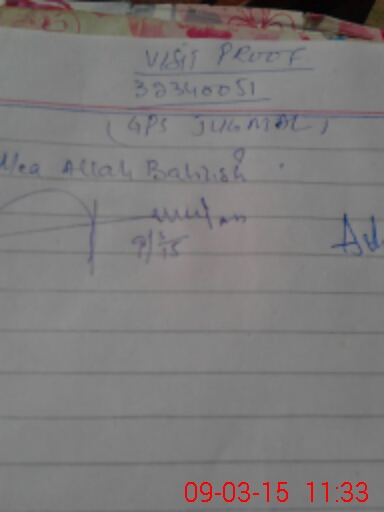 VISIT PROOF
32340051
(GPS JUGMAL)
Allah Bakhsh
9/3/15
Ad
09-03-15 11:33